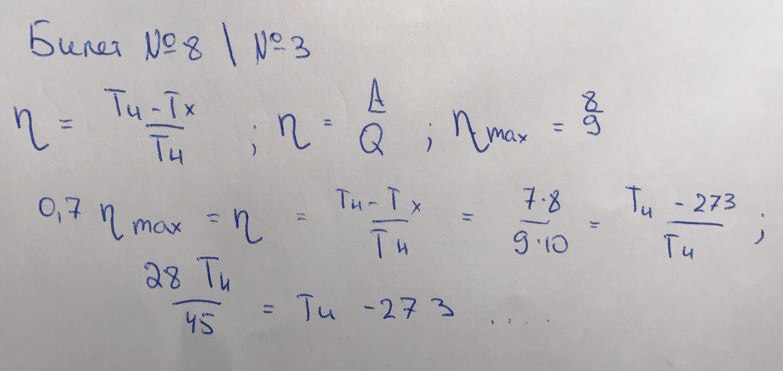 Билет №8 \ №3
η = (Tн - Tx)/Tн ; η = A/Q ; ηmax = 8/9
0,7 ηmax = η = (Tн - Tx)/Tн = 7·8/9·10 = (Tн - 273)/Tн ;
28 Tн/45 = Tн - 273 ....